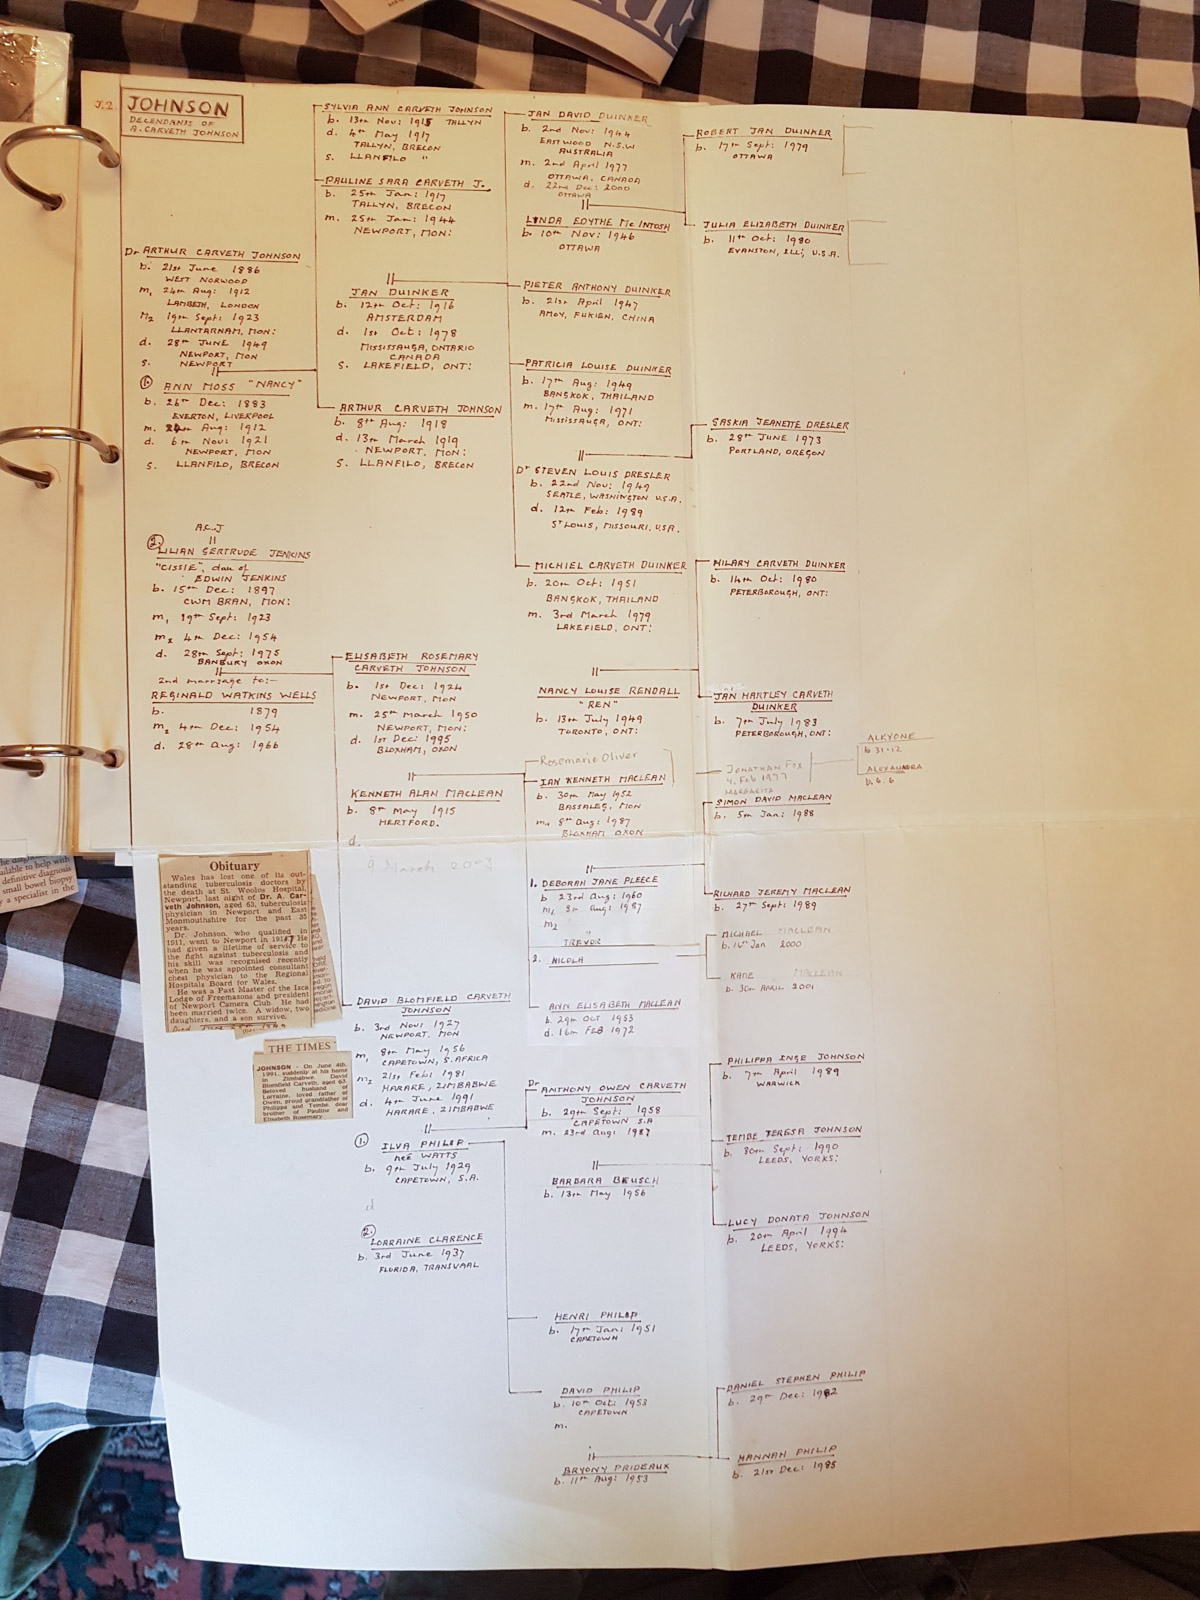 J.2.
JOHNSON
DECENDANTS OF
A. CARVETH JOHNSON
Dr ARTHUR CARVETH JOHNSON
b. 21st June 1886
WEST NORWOOD
m, 24th Aug: 1912
LAMBETH, LONDON
M2 19th Sept: 1923
LLANTARNAM, MON:
d. 28th JUNE 1949
NEWPORT, MON
S. NEWPORT
①. ANN MOSS "NANCY"
b. 26th Dec: 1883
EVERTON, LIVERPOOL
m. 24th Aug: 1912
d. 6th Nov: 1921
NEWPORT, MON
S. LLANFILO, BRECON
A.C.J
②. LILIAN GERTRUDE JENKINS
"CISSIE", dau of
EDWIN JENKINS
b. 15th Dec: 1897
CWM BRAN, MON:
m, 19th Sept: 1923
m2 4th Dec: 1954
d. 28th Sept: 1975
BANBURY OXON
2nd marriage to:-
REGINALD WATKINS WELLS
b. 1879
m2 4th Dec: 1954
d. 28th Aug: 1966
SYLVIA ANN CARVETH JOHNSON
b. 13th Nov: 1915 TALLYN
d. 4th May 1917
TALLYN, BRECON
S. LLANFILO "
PAULINE SARA CARVETH J.
b. 25th Jan: 1917
TALLYN, BRECON
m. 25th Jan: 1944
NEWPORT, MON:
JAN DUINKER
b. 12th Oct: 1916
AMSTERDAM
d. 1st Oct: 1978
MISSISSAUGA, ONTARIO
CANADA
S. LAKEFIELD, ONT:
ARTHUR CARVETH JOHNSON
b. 8th Aug: 1918
d. 13th March 1919
NEWPORT, MON:
S. LLANFILO, BRECON
ELISABETH ROSEMARY
CARVETH JOHNSON
b. 1st Dec: 1924
NEWPORT, MON
m. 25th March 1950
NEWPORT, MON:
d. 1st Dec: 1995
BLOXHAM, OXON
KENNETH ALAN MACLEAN
b. 8th May 1915
HERTFORD.
d.
9 March 2003
DAVID BLOMFIELD CARVETH
JOHNSON
b. 3rd Nov: 1927
NEWPORT, MON
m, 8th May 1956
CAPETOWN, S. AFRICA
m2 21st Feb: 1981
HARARE, ZIMBABWE
d. 4th June 1991
HARARE, ZIMBABWE
①. ILVA PHILIP
neé WATTS
b. 9th July 1929
CAPETOWN, S.A.
d
②. LORRAINE CLARENCE
b. 3rd June 1937
FLORIDA, TRANSVAAL
JAN DAVID DUINKER
b. 2nd Nov: 1944
EASTWOOD N.S.W
AUSTRALIA
m. 2nd April 1977
OTTAWA, CANADA
d. 22nd Dec: 2000
OTTAWA
LYNDA EDYTHE McINTOSH
b. 10th Nov: 1946
OTTAWA
PIETER ANTHONY DUINKER
b. 21st April 1947
AMOY, FUKIEN, CHINA
PATRICIA LOUISE DUINKER
b. 17th Aug: 1949
BANGKOK, THAILAND
m. 17th Aug: 1971
MISSISSAUGA, ONT:
Dr STEVEN LOUIS DRESLER
b. 22nd Nov: 1949
SEATLE, WASHINGTON U.S.A.
d. 12th Feb: 1989
ST LOUIS, MISSOURI, USA.
MICHIEL CARVETH DUINKER
b. 20th Oct: 1951
BANGKOK, THAILAND
m. 3rd March 1979
LAKEFIELD, ONT:
NANCY LOUISE RENDALL
"REN"
b. 13th July 1949
TORONTO, ONT:
Rosemarie Oliver
IAN KENNETH MACLEAN
b. 30th May 1952
BASSALEG, MON
m, 8th Aug: 1987
BLOXHAM OXON
1. DEBORAH JANE PLEECE
b 23rd Aug: 1960
m, 8th Aug: 1987
m2 "
TREVOR
2. NICOLA
ANN ELISABETH MACLEAN
b. 29th OCT 1953
d. 16th FEB 1972
Dr
ANTHONY OWEN CARVETH
JOHNSON
b. 29th Sept: 1958
CAPETOWN S.A
m. 23rd Aug: 1987
BARBARA BEUSCH
b. 13th May 1956
HENRI PHILIP
b. 17th Jan: 1951
CAPETOWN
DAVID PHILIP
b. 10th Oct: 1953
CAPETOWN
m.
BRYONY PRIDEAUX
b. 11th Aug: 1953
ROBERT JAN DUINKER
b. 17th Sept: 1979
OTTAWA
JULIA ELIZABETH DUINKER
b. 11th Oct: 1980
EVANSTON, ILL; U.S.A.
SASKIA JEANETTE DRESLER
b. 28th JUNE 1973
PORTLAND, OREGON
HILARY CARVETH DUINKER
b. 14th Oct: 1980
PETERBOROUGH, ONT:
JAN HARTLEY CARVETH
DUINKER
b. 7th July 1983
PETERBOROUGH, ONT:
JONATHAN FOX
4. Feb 1977
MARGARITA
ALKYONE
b 31-12
ALEXANDRA
b. 6. 6
SIMON DAVID MACLEAN
b. 5th Jan: 1988
RICHARD JEREMY MACLEAN
b. 27th Sept: 1989
MICHAEL MACLEAN
b. 16th Jan 2000
KATE MACLEAN
b. 30th APRIL 2001
PHILIPPA INGE JOHNSON
b. 7th April 1989
WARWICK
TEMBE TERESA JOHNSON
b. 30th Sept: 1990
LEEDS, YORKS:
LUCY DONATA JOHNSON
b. 20th April 1994
LEEDS, YORKS:
DANIEL STEPHEN PHILIP
b. 29th Dec: 1982
HANNAH PHILIP
b. 21st Dec: 1985
Obituary
Wales has lost one of its out-
standing tuberculosis doctors by
the death at St. Woolos Hospital,
Newport, last night of Dr. A. Car-
veth Johnson, aged 63, tuberculosis
physician in Newport and East
Monmouthshire for the past 35
years.
Dr. Johnson, who qualified in
1911, went to Newport in 1914. He
had given a lifetime of service to
the fight against tuberculosis and
his skill was recognised recently
when he was appointed consultant
chest physician to the Regional
Hospitals Board for Wales.
He was a Past Master of the Isca
Lodge of Freemasons and president
of Newport Camera Club. He had
been married twice. A widow, two
daughters, and a son survive.
THE TIMES
JOHNSON - On June 4th,
1991, suddenly at his home
in Zimbabwe. David
Blomfield Carveth, aged 63.
Beloved husband of
Lorraine, loved father of
Owen, proud grandfather of
Philippa and Tembe, dear
brother of Pauline and
Elisabeth Rosemary.
available to help with
definitive diagnosis
small bowel biopsy
a specialist in the